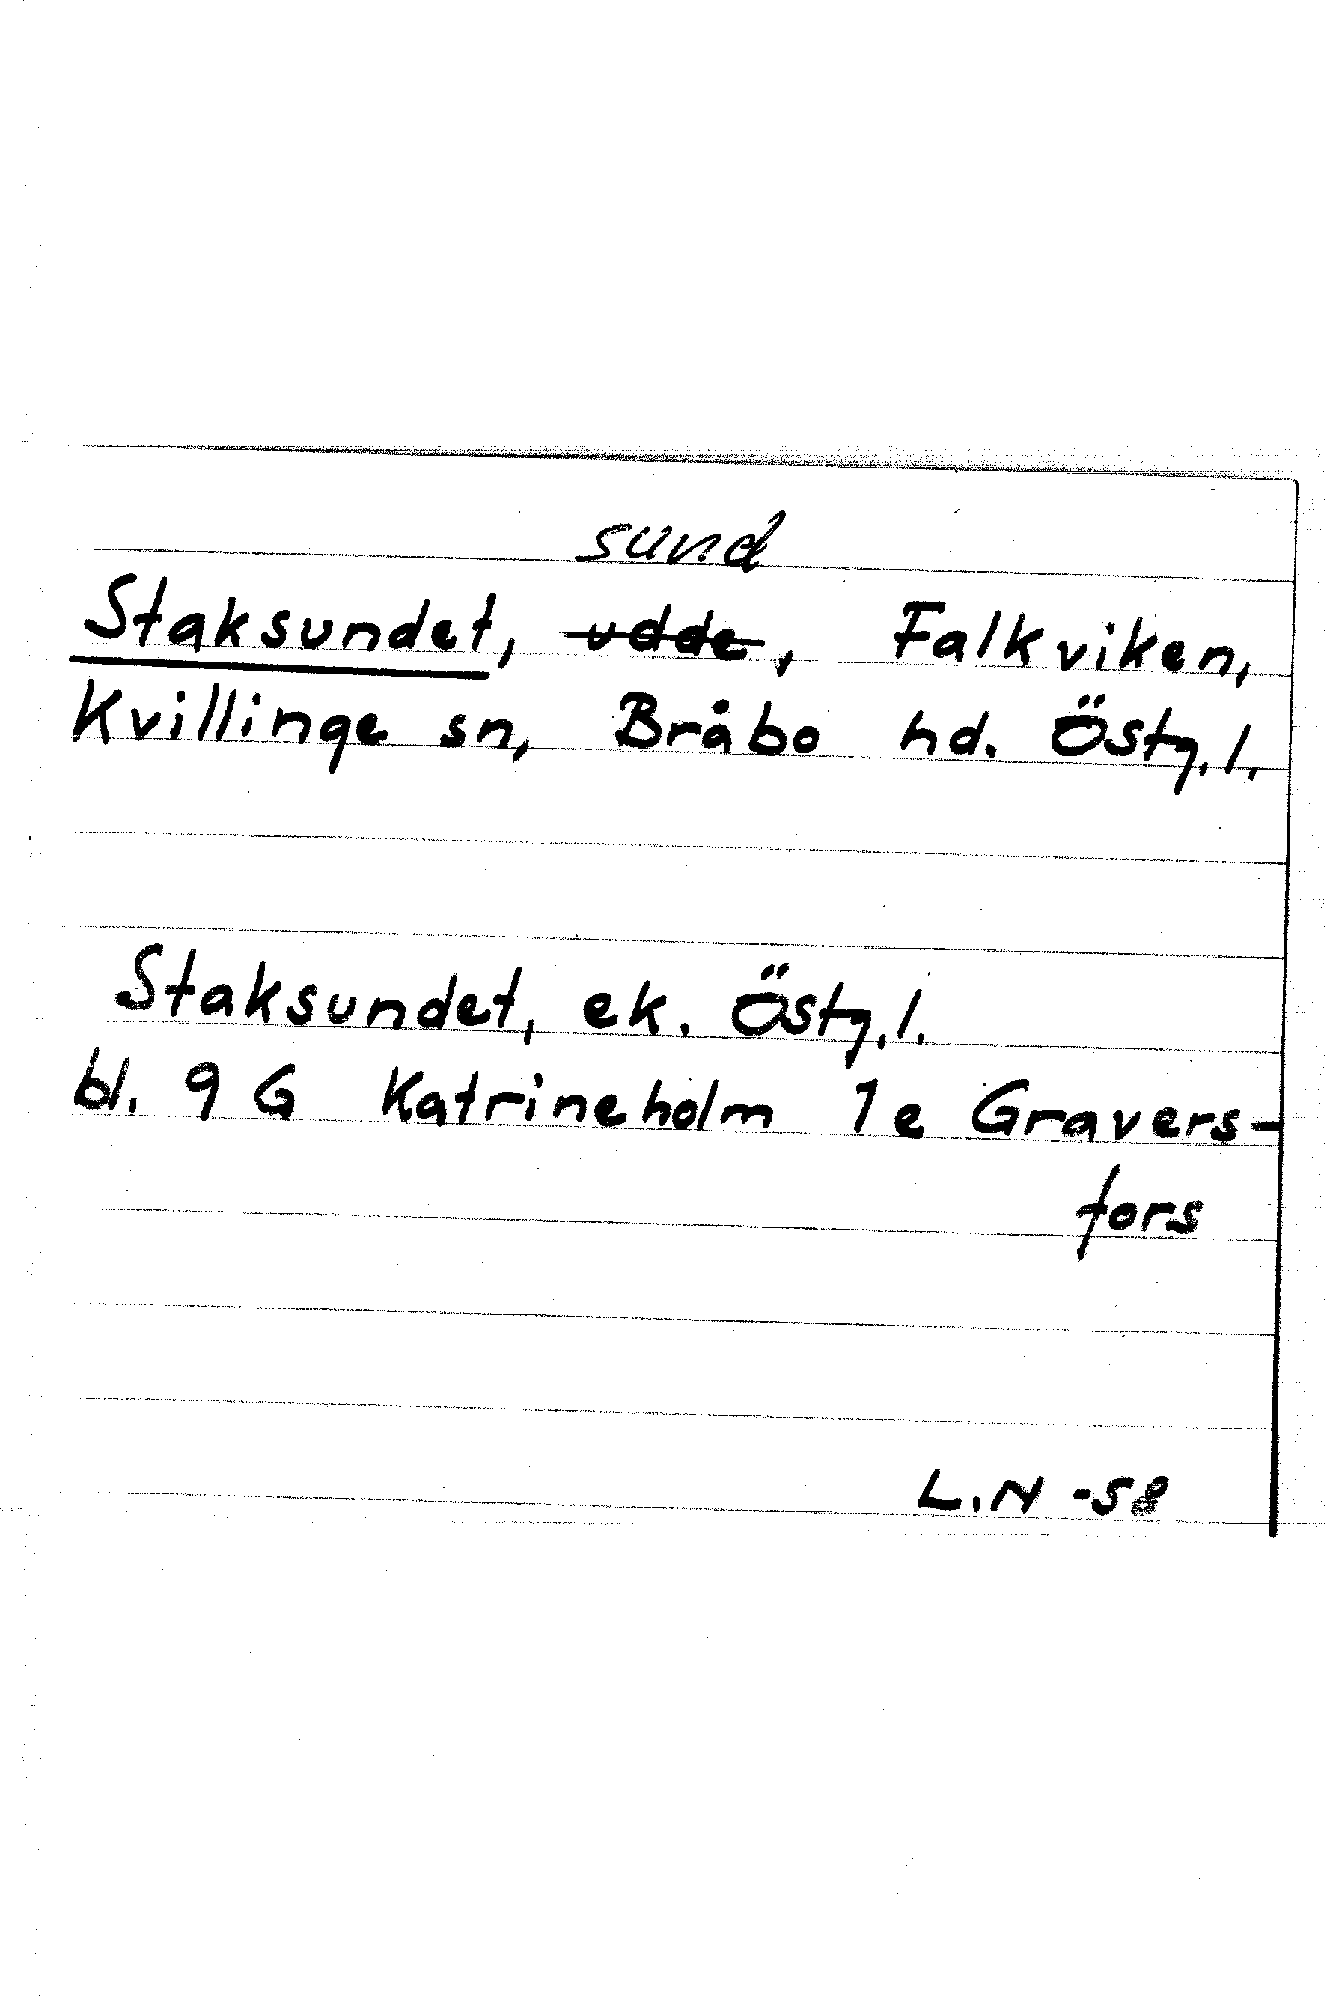 sund
Staksundet, udde, Falkviken,
Kvillinge sn, Bråbo hd. Östg.l.
Staksundet, ek. Östg.l.
bl. 9 G Katrineholm 1e Gravers-
fors
L.N -58